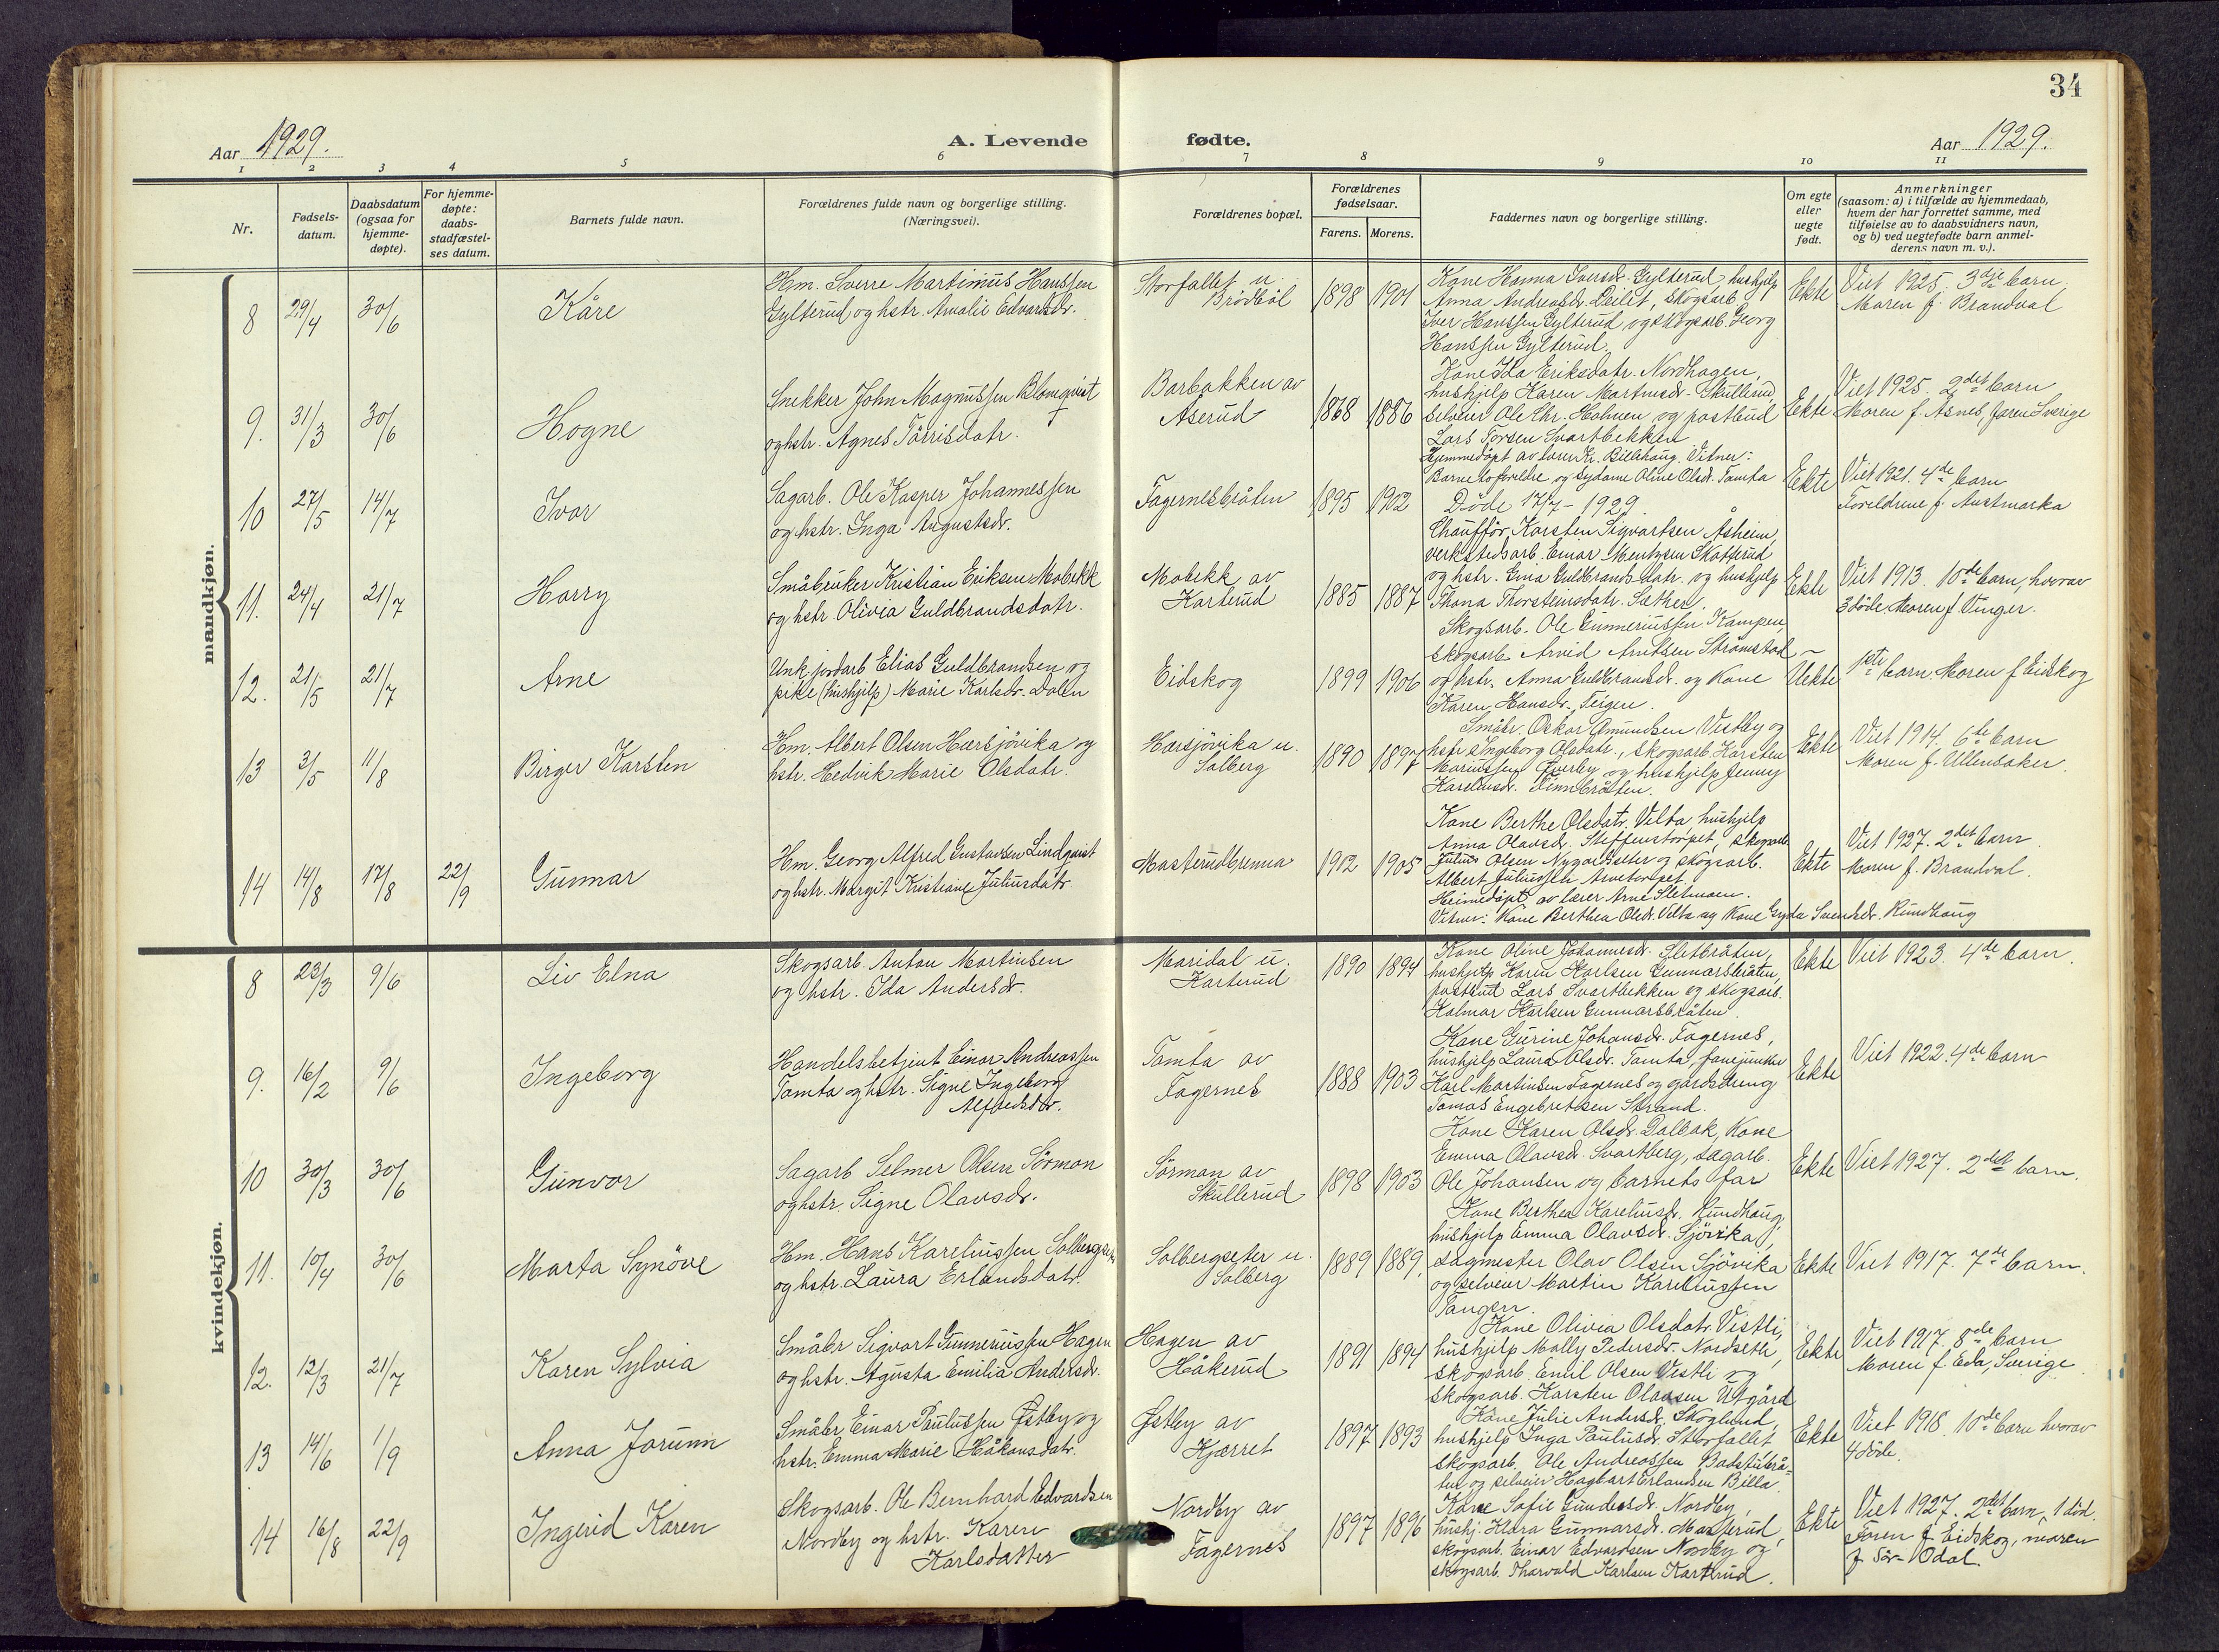 34
Aar 1929.
A. Levende fødte.
Aar 1929.
1 2 3 4 5 6 7 8 9 10 11
Nr.
Fødsels-
datum.
Daabsdatum
(ogsaa for
hjemme-
døpte).
For hjemme-
døpte:
daabs-
stadfæstel-
ses datum.
Barnets fulde navn.
Forældrenes fulde navn og borgerlige stilling.
(Næringsvei).
Forældrenes bopæl.
Forældrenes
fødselsaar.
Farens. Morens.
Faddernes navn og borgerlige stilling.
Om egte
eller
uegte
født.
Anmerkninger
(saasom: a) i tilfælde av hjemmedaab,
hvem der har forrettet samme, med
tilføielse av to daabsvidners navn,
og b) ved uegtefødte barn anmel-
derens navn m. v.).
mandkjøn.
8 29/4 30/6 Kåre
Hm. Sverre Martinius Hanssen
Gylterud og hstr. Amalie Edvardsdr.
Storfallet u
Brödböl
1898 1901
Kone Hanna Iversdr. Gylterud, hushjelp
Anna Andreasdr. Deilit, skogsarb.
Iver Hanssen Gylterud og skogsarb. Georg
Hanssen Gylterud.
Ekte
Viet 1925. 3dje barn.
Moren f. Brandval
9. 31/3 30/6 Hogne
Snekker John Magnussen Blomqvist
og hstr. Agnes Törrisdatr.
Barbakken av
Åserud
1868 1886
Kone Ida Eriksdatr. Nordhagen,
hushjelp Karen Martinsdr. Skullerud,
selveier Ole Chr. Holmen og postbud
Lars Torsen Svartbekken
Ekte
Viet 1925 2det barn
Moren f. Åsnes, faren Sverige
10 27/5 14/7 Ivar
Sagarb. Ole Kasper Johannessen
og hstr. Inga Augustsdr.
Fagernesbråten
1895 1902
Hjemmedöpt av læren Kr. Billihaug. Vitner:
Barnets foreldre og sydame Oline Olsdr. Tamta
Döde 17/7 - 1929.
Ekte
Viet 1921. 4de barn
Foreldrene f. Austmarka
11. 24/4 21/7 Harry
Småbruker Kristian Eriksen Mobekk
og hstr. Olivia Guldbrandsdatr.
Mobekk av
Karterud
1885 1887
Chaufför Karsten Sigvartsen Åsheim,
verkstedsarb. Einar Mentzsen Skotterud
og hstr. Gina Guldbrandsdatr. og hushjelp
Thona Thorsteinsdatr. Sæther.
Ekte
Viet 1913. 10de barn, hvorav
3 döde. Moren f. Vinger.
12. 21/5 21/7 Arne
Unk. jordarb Elias Guldbrandsen og
pike (hushjelp) Marie Karlsdr. Dalen
Eidskog
1899 1906
Skogsarb. Ole Gunneriussen Kampen,
skogsarb. Arvid Arntsen Strömstad
og hstr. Anna Guldbrandsdr. og Kone
Karen Hansdr. Teigen.
Uekte
1ste barn. Moren f Eidskog
13 3/5 11/8 Birger Karsten
Hm. Albert Olsen Hærsjövika og
hstr. Hedvik Marie Olsdatr.
Hærsjövika u.
Solberg
1890 1897
Småbr. Oskar Amundsen Vestby og
hstr Ingeborg Olsdatr., skogsarb. Karsten
Mariussen Överby og hushjelp Jenny
Kareliusdr. Finnbråten.
Ekte
Viet 1914. 6te barn
Moren f. Ullensaker.
14 14/8 17/8 22/9 Gunnar
Hm. Georg Alfred Gustavsen Lindqvist
og hstr. Margit Kristiane Juliusdatr
Masterudbrenna
1902 1905
Kone Berthe Olsdatr. Velta hushjelp
Anna Olavsdr. Steffenstorpet, skogsarb
Julius Olsen Nygardseter og skogsarb.
Albert Juliussen Arnetorpet
Heimedöpt av lærer Arne Sletmoen.
Vitner: Kone Berthea Olsdr. Velta og Kone Gyda Svensdr. Rundhaug
Ekte
Viet 1927. 2det barn
Moren f. Brandval.
kvindekjøn.
8 23/3 9/6 Liv Elna
Skogsarb. Anton Martinsen
og hstr. Ida Andersdr.
Maridal u.
Karterud
1890 1894
Kone Oline Johannesdr. Sletbråten,
hushjelp Karin Karlsen Gunnarsbråten,
postbud Lars Svartbekken og skogsarb.
Halmar Karlsen Gunnarsbråten
Ekte
Viet 1923. 4de barn.
9. 16/2 9/6 Ingeborg
Handelsbetjent Einar Andreassen
Tamta og hstr. Signe Ingeborg
Alfredsdr.
Tamta av
Fagernes
1888 1903
Kone Gurine Johansdr. Fagernes,
hushjelp Laura Olsdr. Tamta, fanejunker
Karl Martinsen Fagernes og gårdsdreng
Tomas Engebretsen Strand.
Ekte
Viet 1922. 4de barn
10 30/3 30/6 Gunvor
Sagarb Selmer Olsen Sörmon
og hstr. Signe Olavsdr.
Sörman av
Skullerud
1898 1903
Kone Karen Olsdr. Dalbak, Kone
Emma Olavsdr. Svartberg, sagarb.
Ole Johansen og barnets far
Ekte
Viet 1927. 2det barn.
11. 10/4 30/6 Marta Synöve
Hm. Hans Kareliussen Solbergset
og hstr. Laura Erlandsdatr.
Solbergseter u.
Solberg
1889 1889
Kone Berthea Kareliusdr. Rundhaug,
hushjelp Emma Olavsdr. Sjövika,
sagmester Olav Olsen Sjövika
og selveier Martin Kareliussen
Tangen.
Ekte
Viet 1917. 7de barn.
12. 12/3 21/7 Karen Sylvia
Småbr Sigvart Gunneriussen Hagen
og hstr. Agusta Emilia Andersdr.
Hagen av
Håkerud
1891 1894
Kone Olivia Olsdatr. Vistli,
hushjelp Molly Pedersdr. Nordseth,
skogsarb. Emil Olsen Vestli og
skogsarb. Karsten Olavsen Utgård
Ekte
Viet 1917. 8de barn
Moren f Eda, Sverige
13 14/6 1/9 Anna Jorunn
Småbr. Einar Paulussen Østby og
hstr. Emma Marie Håkonsdatr.
Østby av
Kjærret
1897 1893
Kone Julie Andersdr. Skoglund,
hushjelp Inga Paulusdr. Storfallet
skogsarb. Ole Andreassen Badstubrå-
ten og selveier Hagbart Erlandsen Billa.
Ekte
Viet 1918. 10de barn hvorav
4 döde.
14 16/8 22/9 Ingerid Karen
Skogsarb. Ole Bernhard Edvardsen
Nordby og hstr. Karen
Karlsdatter
Nordby av
Fagernes
1897 1896
Kone Sofie Gundersdr. Nordby,
hushj. Klara Gunnarsdr. Masterud,
skogsarb. Einar Edvardsen Nordby og
skogsarb. Tharvald Karlsen Karterud.
Ekte
Viet 1927. 2det barn, 1 död.
Faren f. Eidskog, moren
f. Sör-Odal.